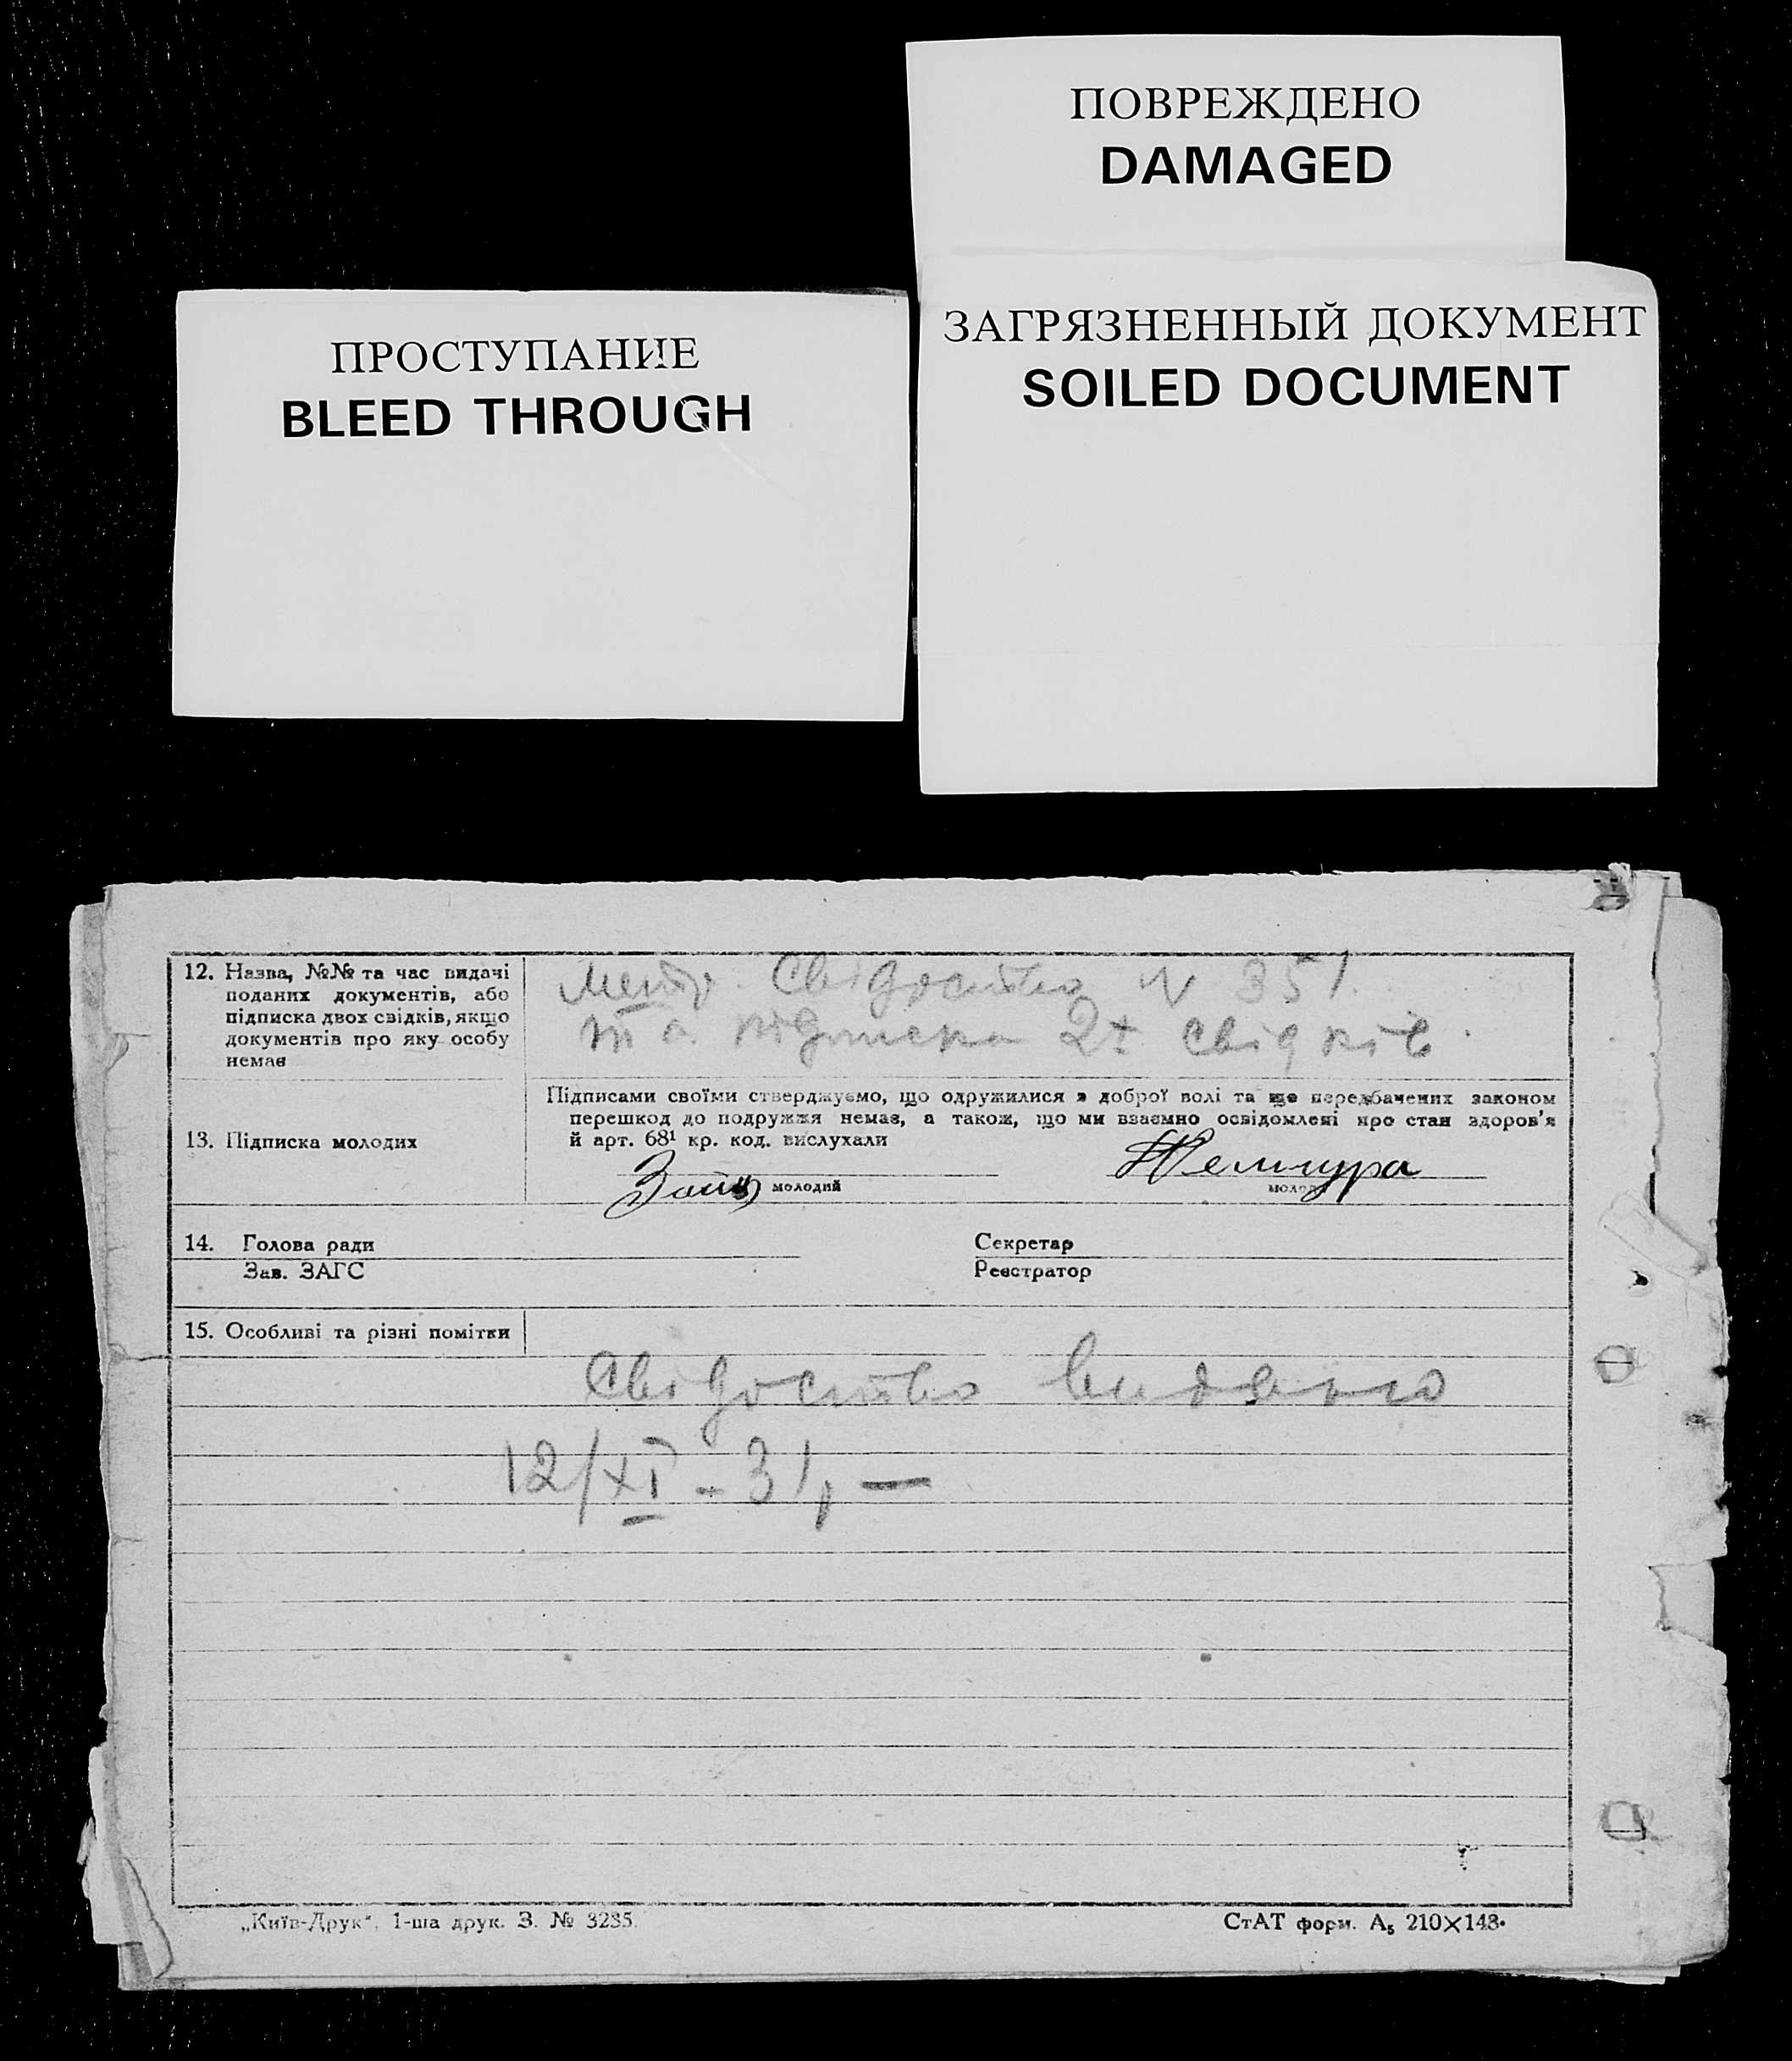 ПОВРЕЖДЕНО
DAMAGED
ПРОСТУПАНИЕ
BLEED THROUGH
ЗАГРЯЗНЕННЫЙ ДОКУМЕНТ
SOILED DOCUMENT
12. Назва, №№ та час видачі
поданих документів, або
підписка двох свідків, якщо
документів про яку особу
немає
Метр. Свідоство N 351.
та підписка 2х свідків.
13. Підписка молодих
Підписами своїми стверджуємо, що одружилися з доброї волі та що передбачених законом
перешкод до подружжя немає, а також, що ми взаємно освідомлені про стан здоров'я
й арт. 68¹ кр. код. вислухали
молодий
14. Голова ради
Зав. ЗАГС
Секретар
Реєстратор
15. Особливі та різні помітки
Свідоство видано
12/XI - 31, —
„Київ-Друк", 1-ша друк. З. № 3235.
СтАТ форм. А₅ 210×148•